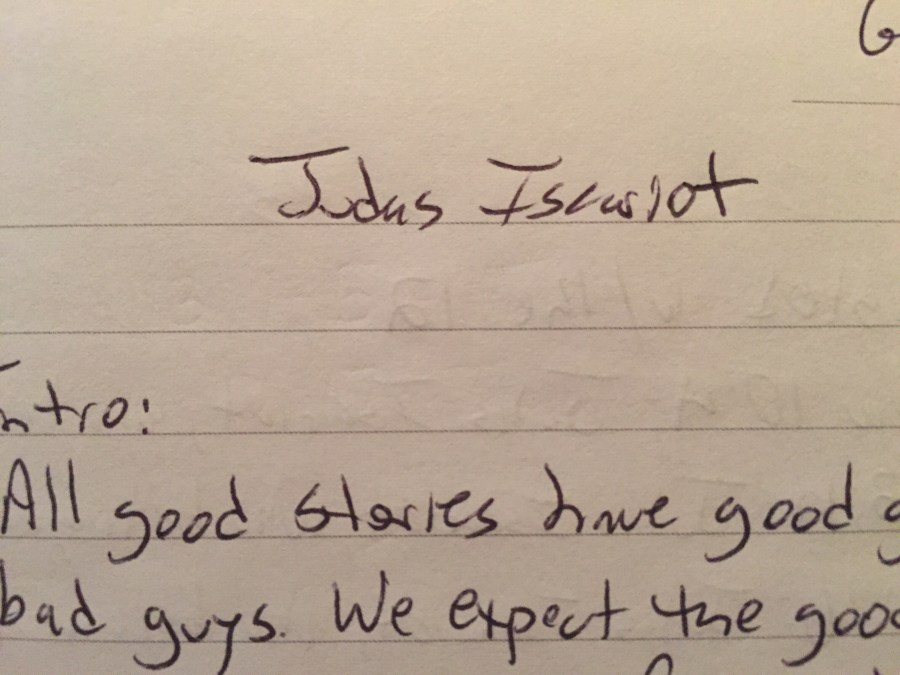 Judas Iscariot
Intro:
All good stories have good
bad guys. We expect the good